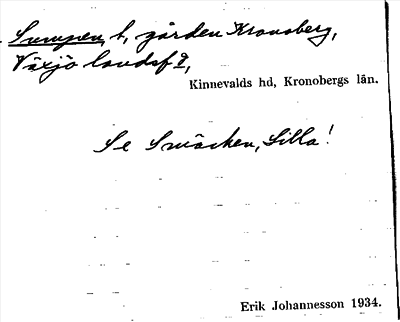 Sumpen, t, gården Kronoberg,
Växjö landsf²,
Kinnevalds hd, Kronobergs län.
Se Smäcken, Lilla!
Erik Johannesson 1934.